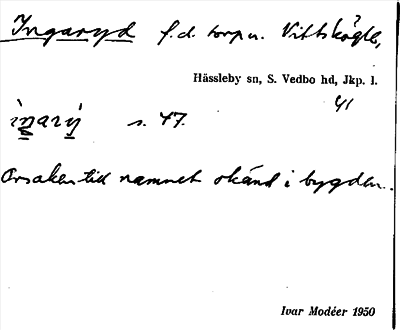 Ingaryd f.d. torp u. Vittskögle,
Hässleby sn, S. Vedbo hd, Jkp. l.
41
ìnarý s. 47.
Orsaken till namnet okänd i bygden.
Ivar Modéer 1950